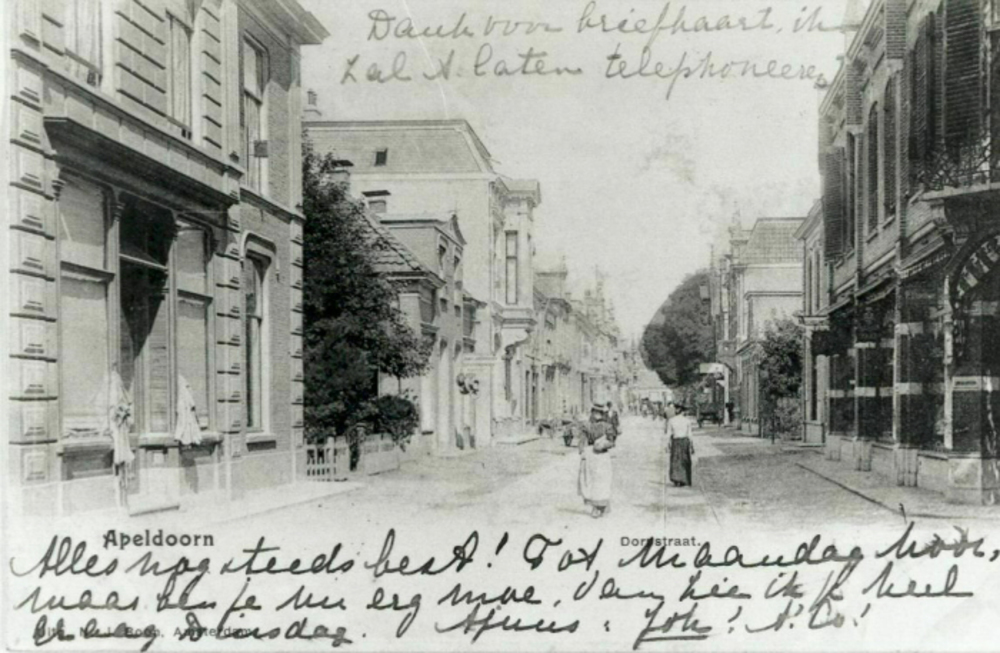 Dank voor briefkaart, ik
zal A. laten telephoneeren
Apeldoorn
Dorpstraat.
Alles nog steeds best! Tot Maandag hoor,
maar ben je nu erg moe, dan zie ik je heel
graag Dinsdag. : Joh! A. Co!
Amsterdam